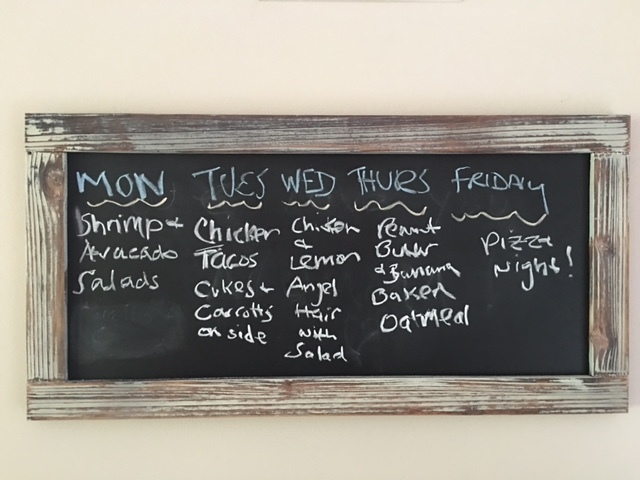 MON
Shrimp +
Avacado
Salads
TUES
Chicken
Tacos
Cukes +
Carrotts
on side
WED
Chicken
&
Lemon
Angel
Hair
with
Salad
THURS
Peanut
Butter
& Banana
Baked
Oatmeal
FRIDAY
Pizza
Night!